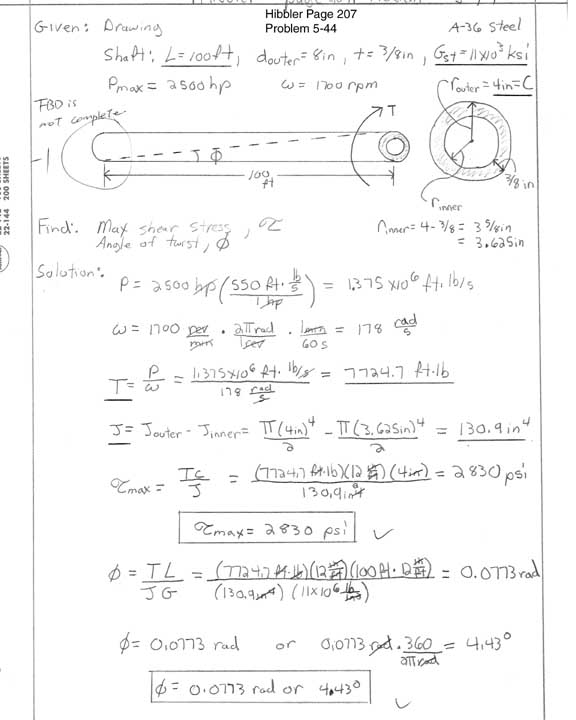 Hibbler Page 207
Problem 5-44
Given: Drawing
A-36 Steel
Shaft: L=100ft, douter=8in, t=3/8in, Gst=11x10³ksi
Pmax = 2500hp ω = 1700rpm
router=4in=C
FBD is
not complete
-1
T
Φ
100
ft
3/8 in
rinner
22-144 200 SHEETS
Find: Max shear stress, τ
Angle of twist, ϕ
rinner=4-3/8= 3 5/8in
= 3.625in
Solution:
P = 2500hp (550 ft·lb/s / 1hp) = 1.375x10⁶ ft.lb/s
ω = 1700 rev/min · 2πrad/1rev · 1min/60s = 178 rad/s
T = P/ω = 1.375x10⁶ ft·lb/s / 178 rad/s = 7724.7 ft·lb
J = Jouter - Jinner = π(4in)⁴/2 - π(3.625in)⁴/2 = 130.9in⁴
τmax = TC/J = (7724.7 ft·lb)(12 in/ft)(4in) / 130.9in⁴ = 2830 psi
τmax = 2830 psi ✓
ϕ = TL/JG = (7724.7 ft·lb)(12 in/ft)(100ft·12 in/ft) / (130.9in⁴)(11x10⁶ lb/in²) = 0.0773rad
ϕ = 0.0773 rad or 0.0773 rad · 360/2πrad = 4.43°
ϕ = 0.0773 rad or 4.43° ✓